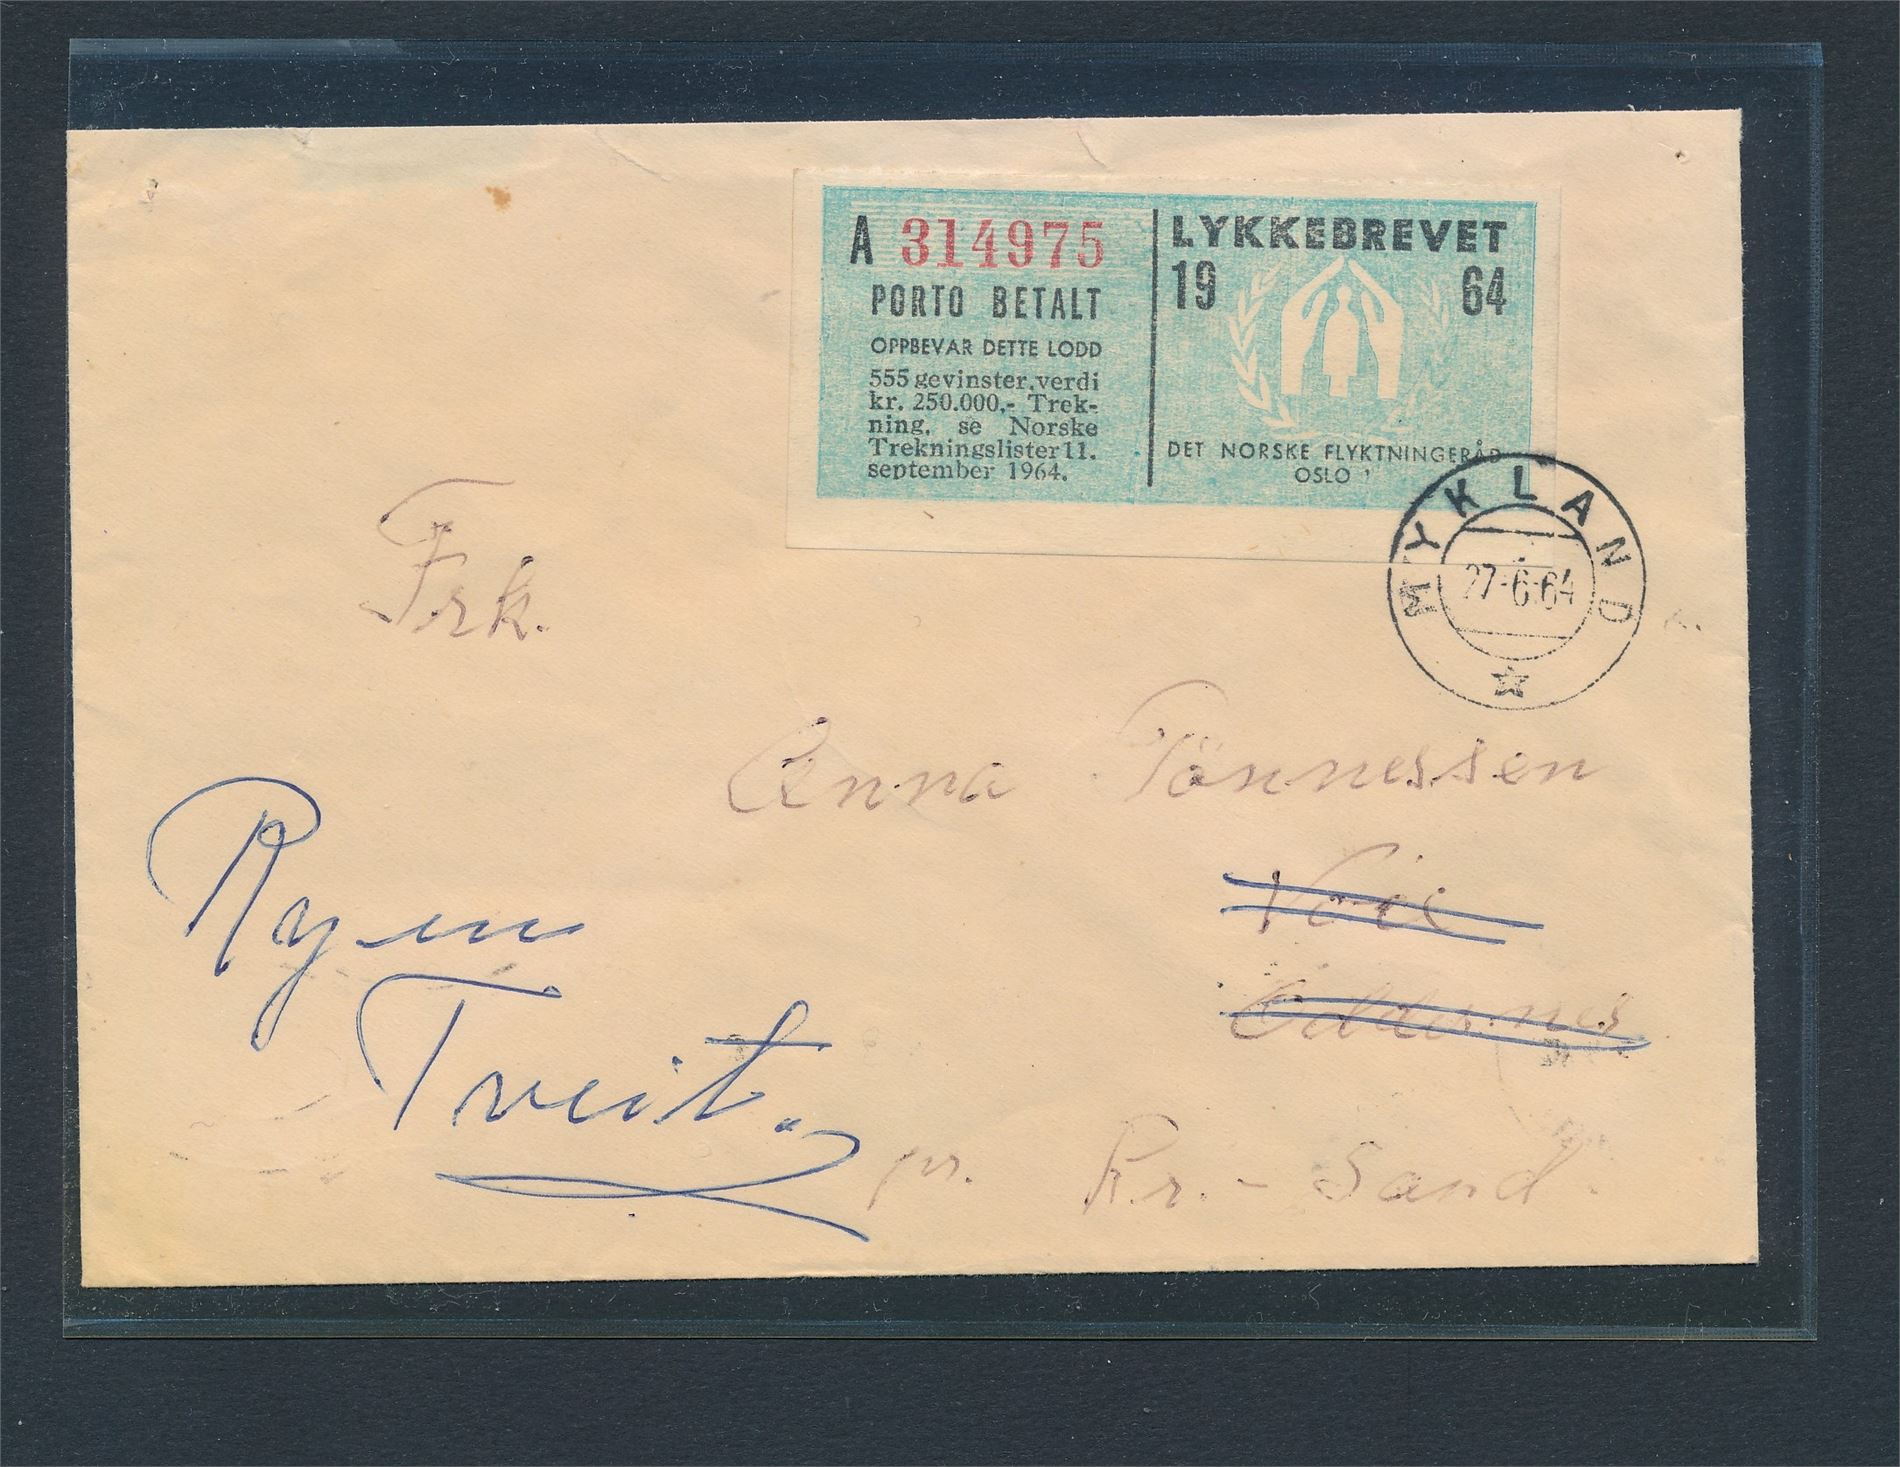 A 314975
PORTO BETALT
OPPBEVAR DETTE LODD
555 gevinster, verdi
kr. 250.000,- Trek-
ning, se Norske
Trekningslister 11.
september 1964.
LYKKEBREVET
19 64
DET NORSKE FLYKTNINGERÅD
OSLO
MYKLAND
27-6-64
Frk.
Anna Tönnessen
Voie
Oddernes
pr. Kr.-Sand.
Ryen
Tveit.